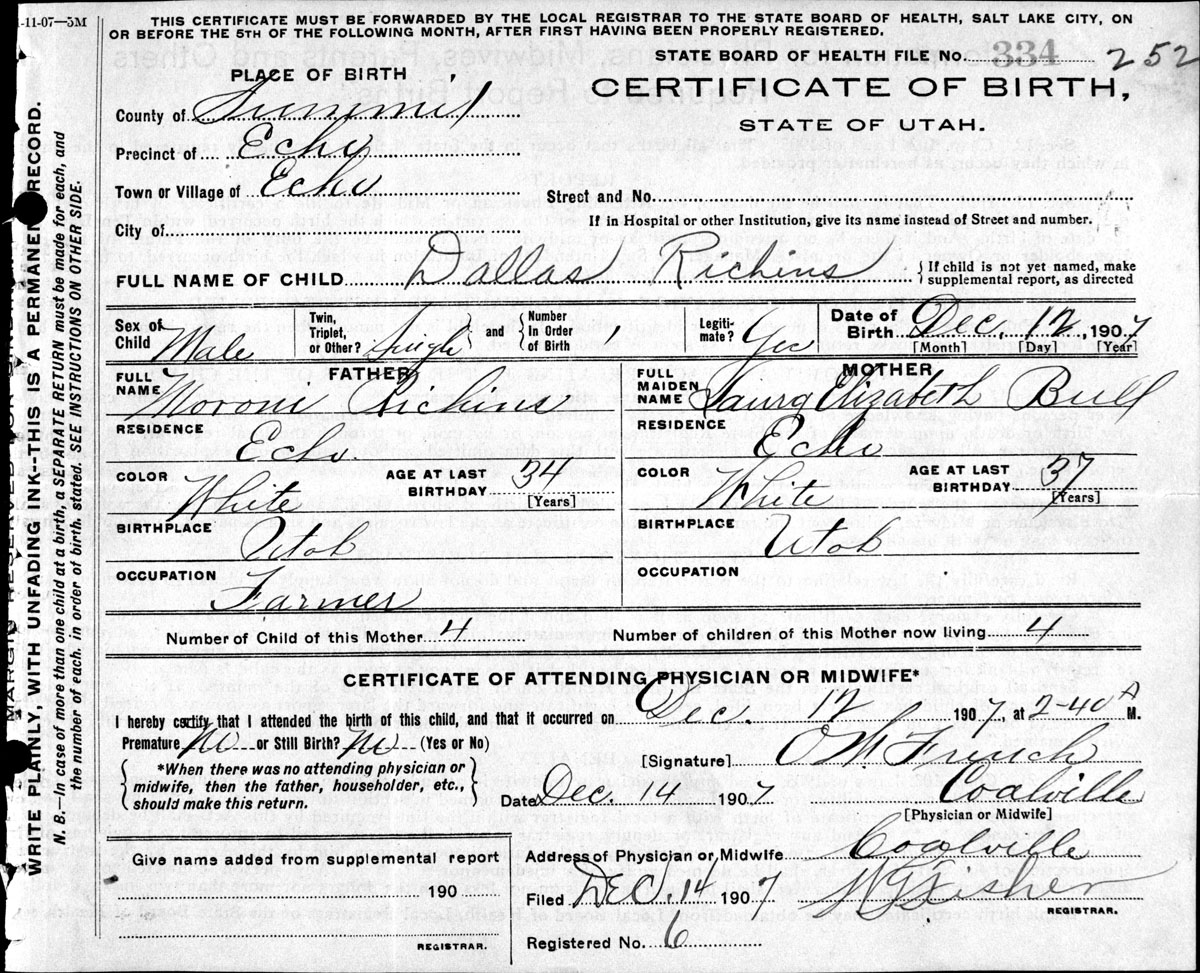 1-11-07—5M
THIS CERTIFICATE MUST BE FORWARDED BY THE LOCAL REGISTRAR TO THE STATE BOARD OF HEALTH, SALT LAKE CITY, ON
OR BEFORE THE 5TH OF THE FOLLOWING MONTH, AFTER FIRST HAVING BEEN PROPERLY REGISTERED.
STATE BOARD OF HEALTH FILE No. 334 252
PLACE OF BIRTH
CERTIFICATE OF BIRTH,
STATE OF UTAH.
County of Summit
Precinct of Echo
Town or Village of Echo
Street and No.
City of
If in Hospital or other Institution, give its name instead of Street and number.
FULL NAME OF CHILD Dallas Richins { If child is not yet named, make supplemental report, as directed
Sex of Child Male Twin, Triplet, or Other? Single and Number In Order of Birth Legitimate? Yes Date of Birth Dec. 12, 1907
[Month] [Day] [Year]
FATHER MOTHER
FULL NAME Moroni Richins FULL MAIDEN NAME Laura Elizabeth Bull
RESIDENCE Echo. RESIDENCE Echo
COLOR White AGE AT LAST BIRTHDAY 34 [Years] COLOR White AGE AT LAST BIRTHDAY 37 [Years]
BIRTHPLACE Utah BIRTHPLACE Utah
OCCUPATION Farmer OCCUPATION
Number of Child of this Mother 4 Number of children of this Mother now living 4
CERTIFICATE OF ATTENDING PHYSICIAN OR MIDWIFE*
I hereby certify that I attended the birth of this child, and that it occurred on Dec. 12 1907, at 2-40 A M.
Premature No or Still Birth? No (Yes or No)
[Signature] French
{ *When there was no attending physician or midwife, then the father, householder, etc., should make this return. }
Date Dec. 14 1907 Coalville
[Physician or Midwife]
Give name added from supplemental report
190
REGISTRAR.
Address of Physician or Midwife Coalville
Filed DEC. 14 1907 Fisher
REGISTRAR.
Registered No. 6
MARGIN RESERVED FOR BINDING
WRITE PLAINLY, WITH UNFADING INK--THIS IS A PERMANENT RECORD.
N. B.—In case of more than one child at a birth, a SEPARATE RETURN must be made for each, and
the number of each, in order of birth, stated. SEE INSTRUCTIONS ON OTHER SIDE.